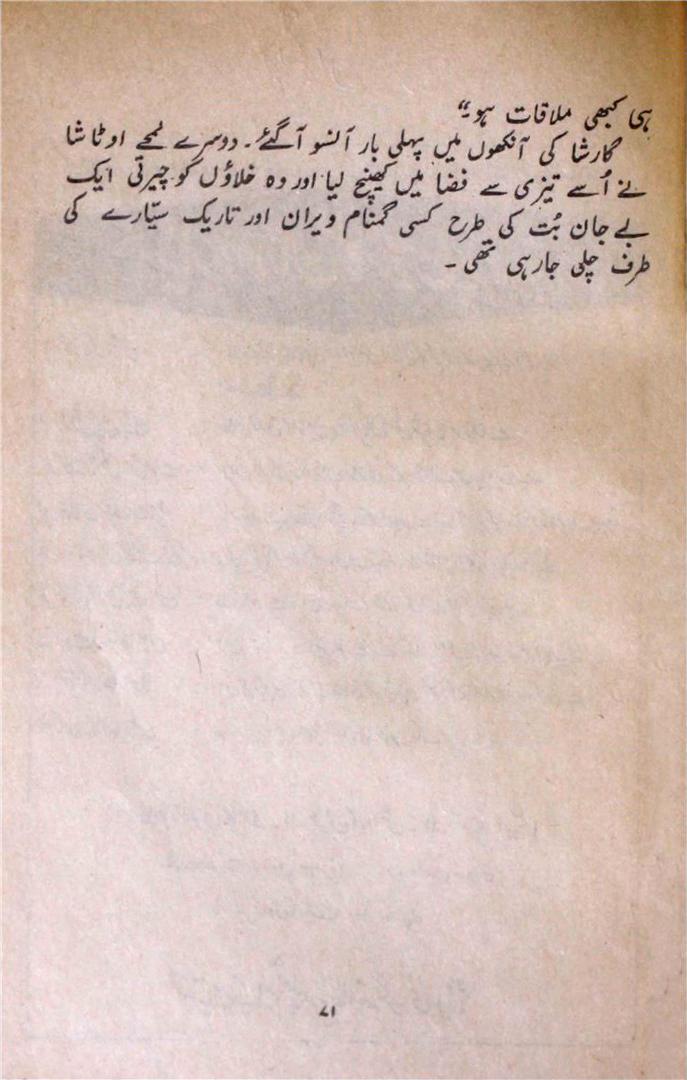 ہی کبھی ملاقات ہو۔“
گارشا کی آنکھوں میں پہلی بار آنسو آگئے۔ دوسرے لمحے اوٹاشا
نے اُسے تیزی سے فضا میں کھینچ لیا اور وہ خلاؤں کو چیرتی ایک
بے جان بُت کی طرح کسی گمنام ویران اور تاریک سیّارے کی
طرف چلی جارہی تھی۔
۷۱